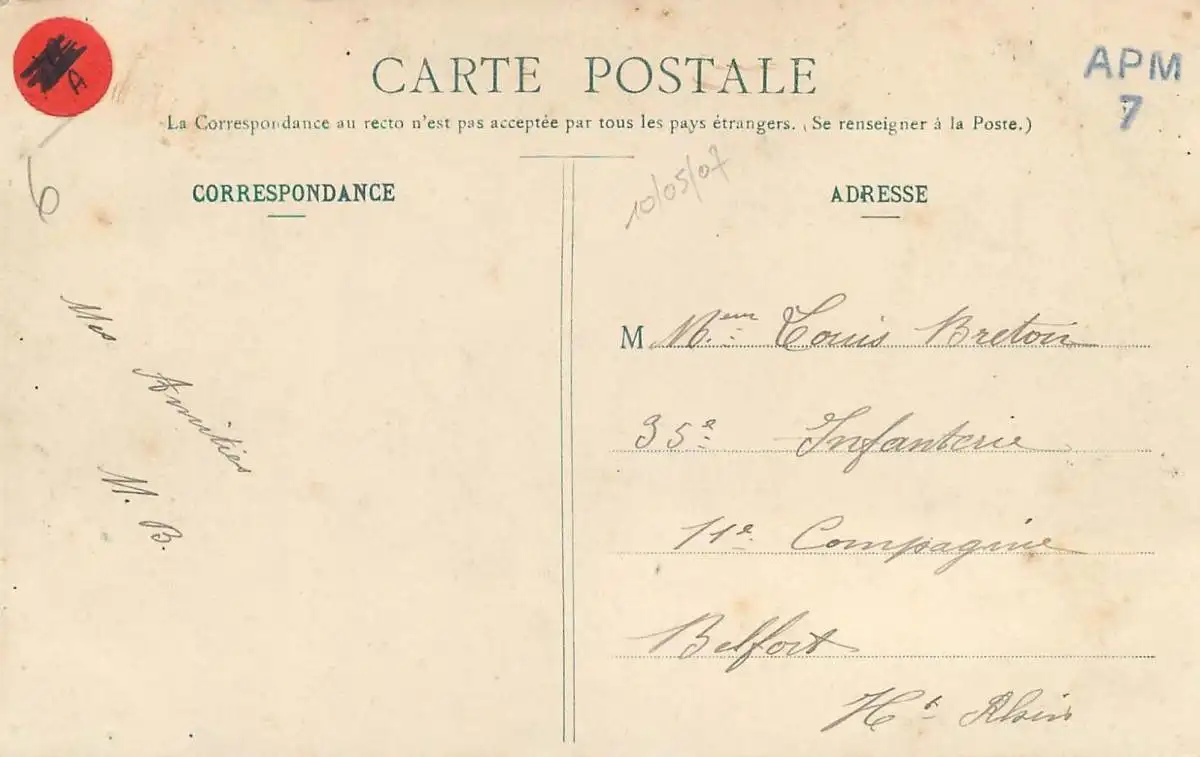 A
APM
7
CARTE POSTALE
La Correspondance au recto n'est pas acceptée par tous les pays étrangers. (Se renseigner à la Poste.)
6
CORRESPONDANCE
10/05/07
ADRESSE
Mes
Amitiés
M. B.
M M.eur Louis Breton
35e Infanterie
11e Compagnie
Belfort
Ht Rhin